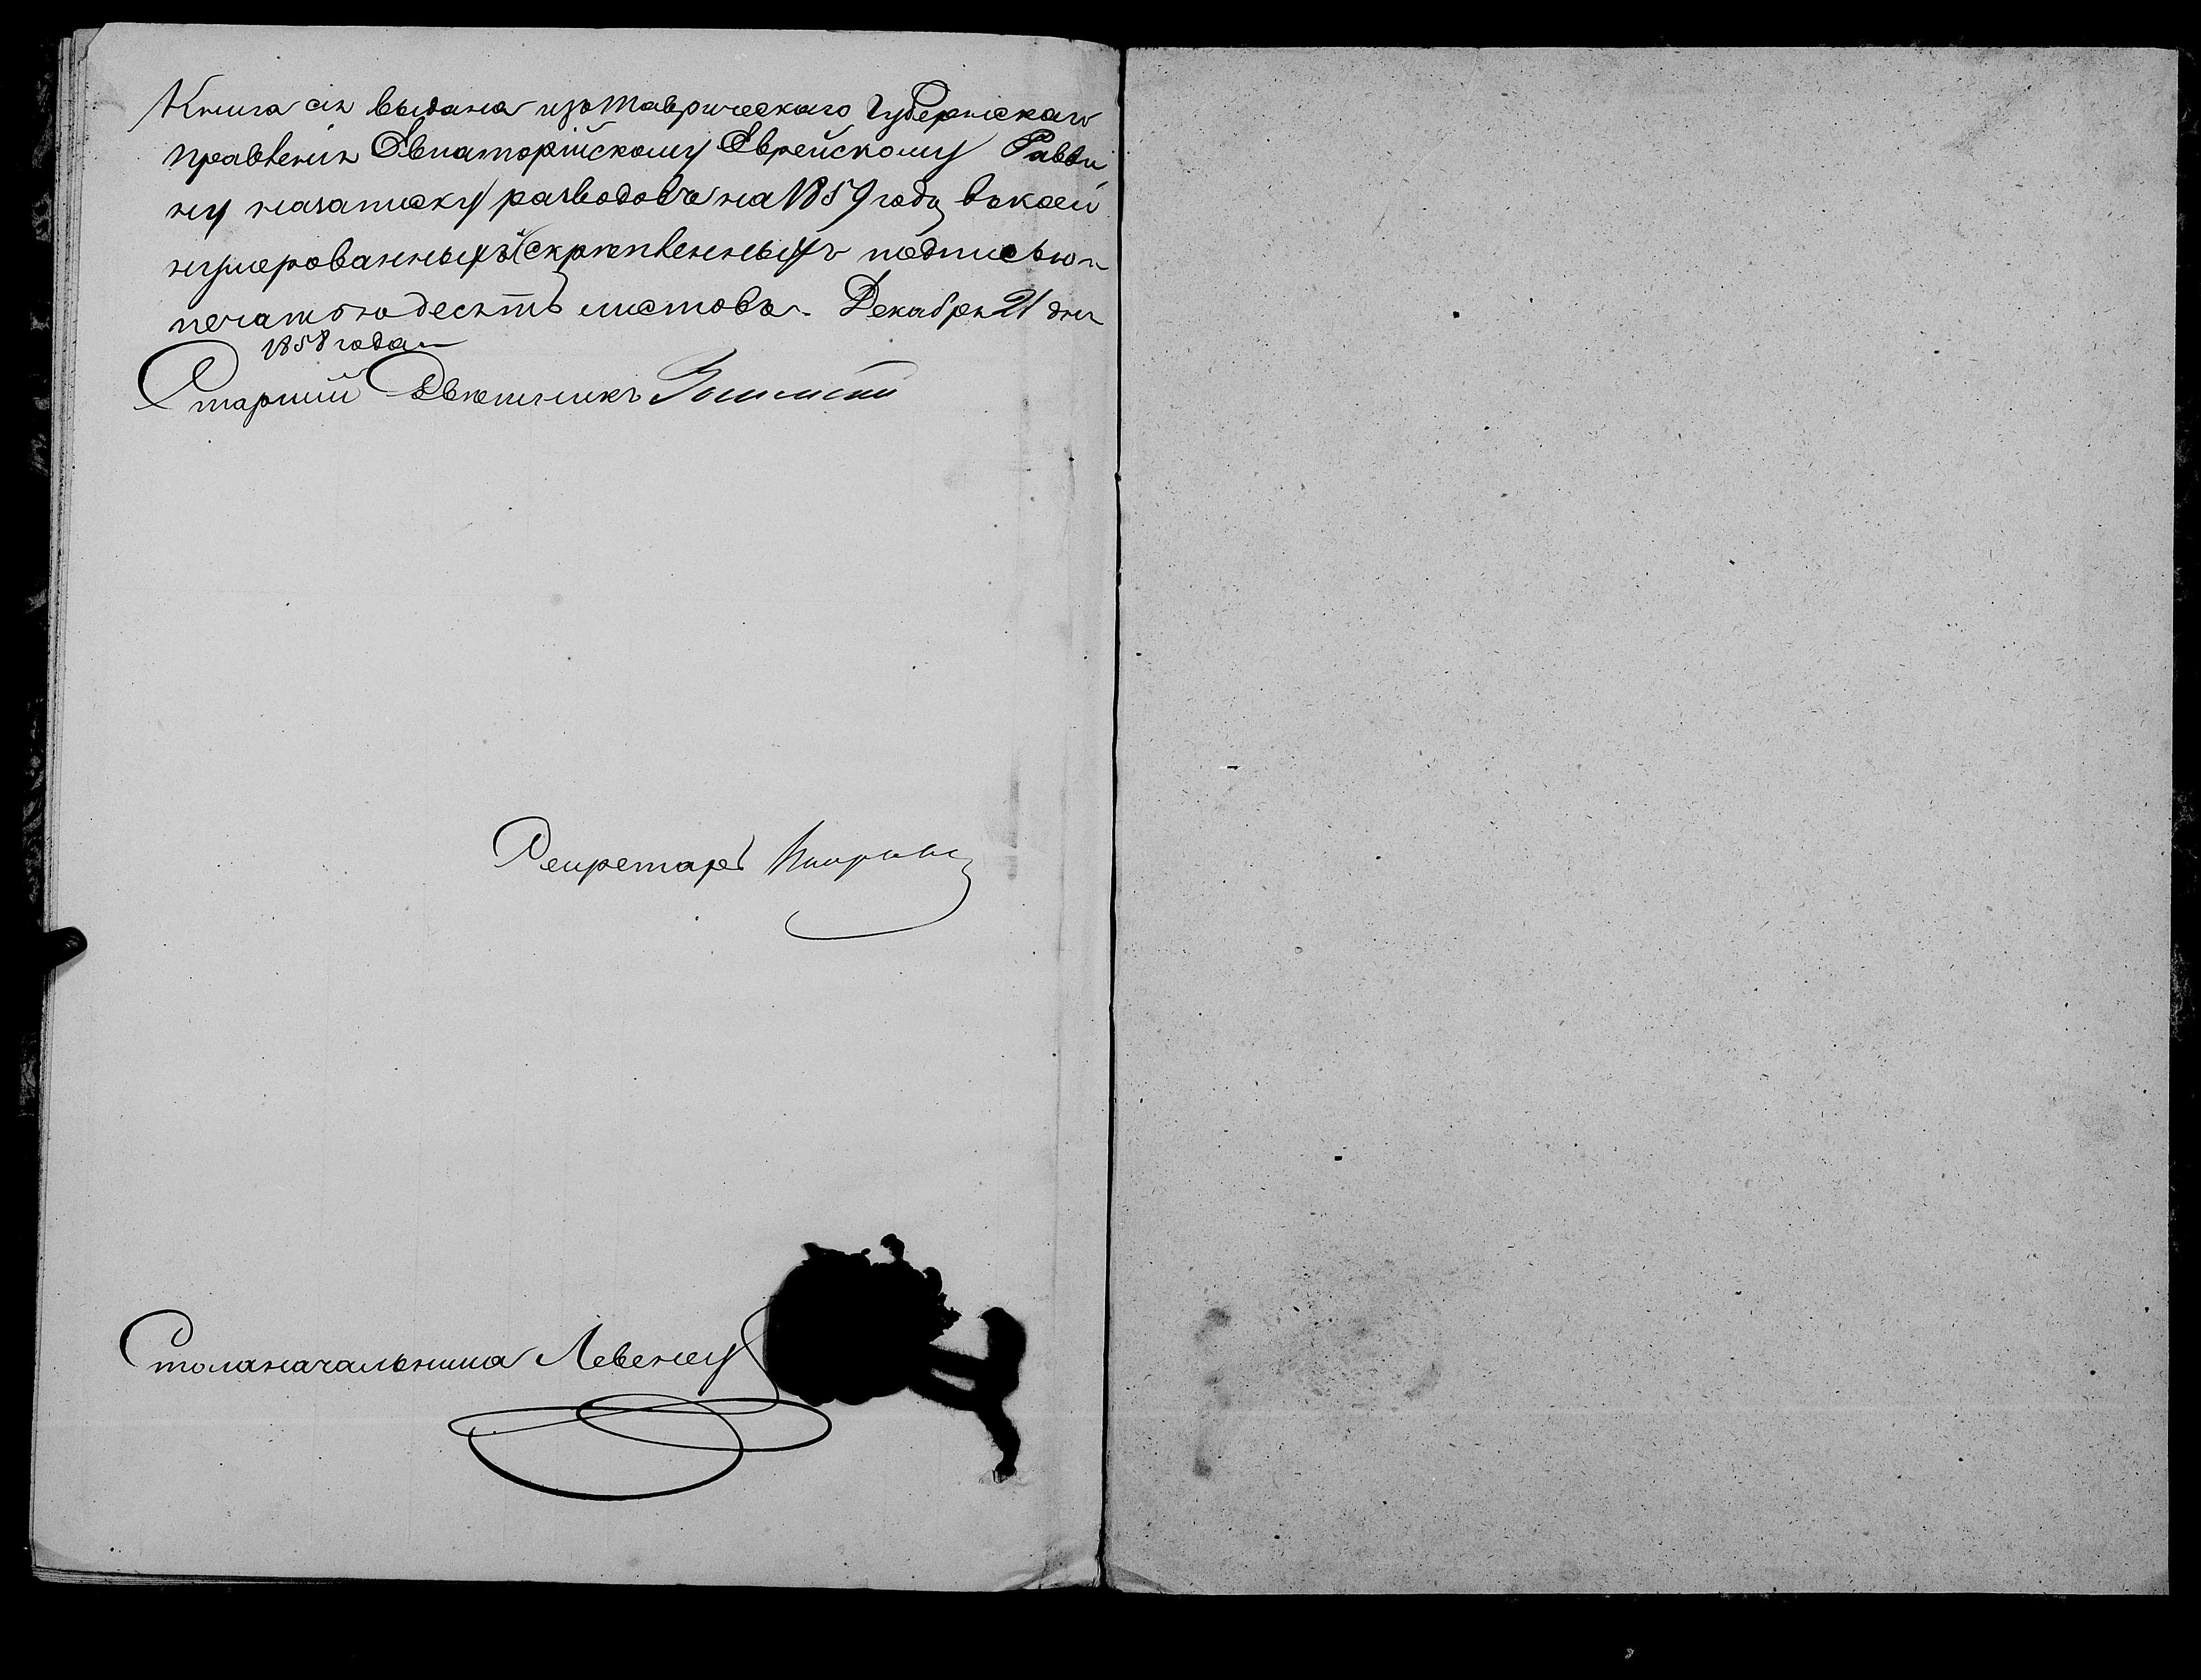 Книга сія выдана изъ Таврическаго Губернскаго
Правленія Евпаторійскому Еврейскому Равви
ну на записку разводовъ на 1859 годъ въ коей
нумерованныхъ и скрѣпленныхъ подписью и
печатью десять листовъ. Декабря 21 дня
1858 года
Старшій Совѣтникъ
Секретарь
Столоначальника